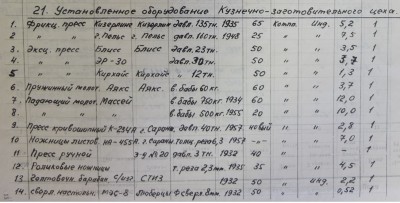 21. Установленное оборудование Кузнечно-заготовительного цеха
1 Фрикц. пресс давл. 135тн. 1935 65 Комп. Инд. 5,2 1
2 " " г. Пельс г. Пельс давл. 160тн. 1948 25 " " 7,5 1
3 Эксц. пресс Блисс Блисс давл. 23тн. 50 " " 3,5 1
4 " " ЭР-30 давл. 30тн 50 " " 3,7 1
5 " " Кирхайс Кирхайс " 12тн. 50 " " 1,3 1
6 Пружинный молот Аякс Аякс в.бабы 60кг. 50 " " 3,7 1
7 Падающий молот Массей в.бабы 750кг 1934 60 " " 12,0 1
8 " " в бабы 500кг 1955 20 " " 10,0 1
9 Пресс кривошипный К-234А давл. 40тн. 1957 новый " " 2,8 1
10 Ножницы листов. 3 " " 7,0 1
11 Пресс ручной давл. 3тн. 1932 40 " " 1
12 Роликовые ножницы т. реза 2,3мм. 1935 35 " " 4,5 1
13 СТИЗ 1932 50 " Инд 2,2 1
14 Сверл. настольн. Люберцы Ф сверл. 1932 50 " " 0,52 1